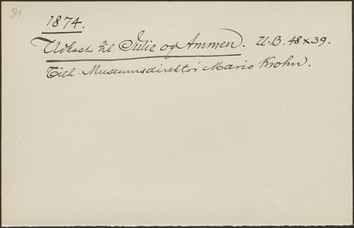 1874.
Udkast til Julie og Ammen. U.B. 48x39.
Till. Museumsdirektør Mario Krohn.